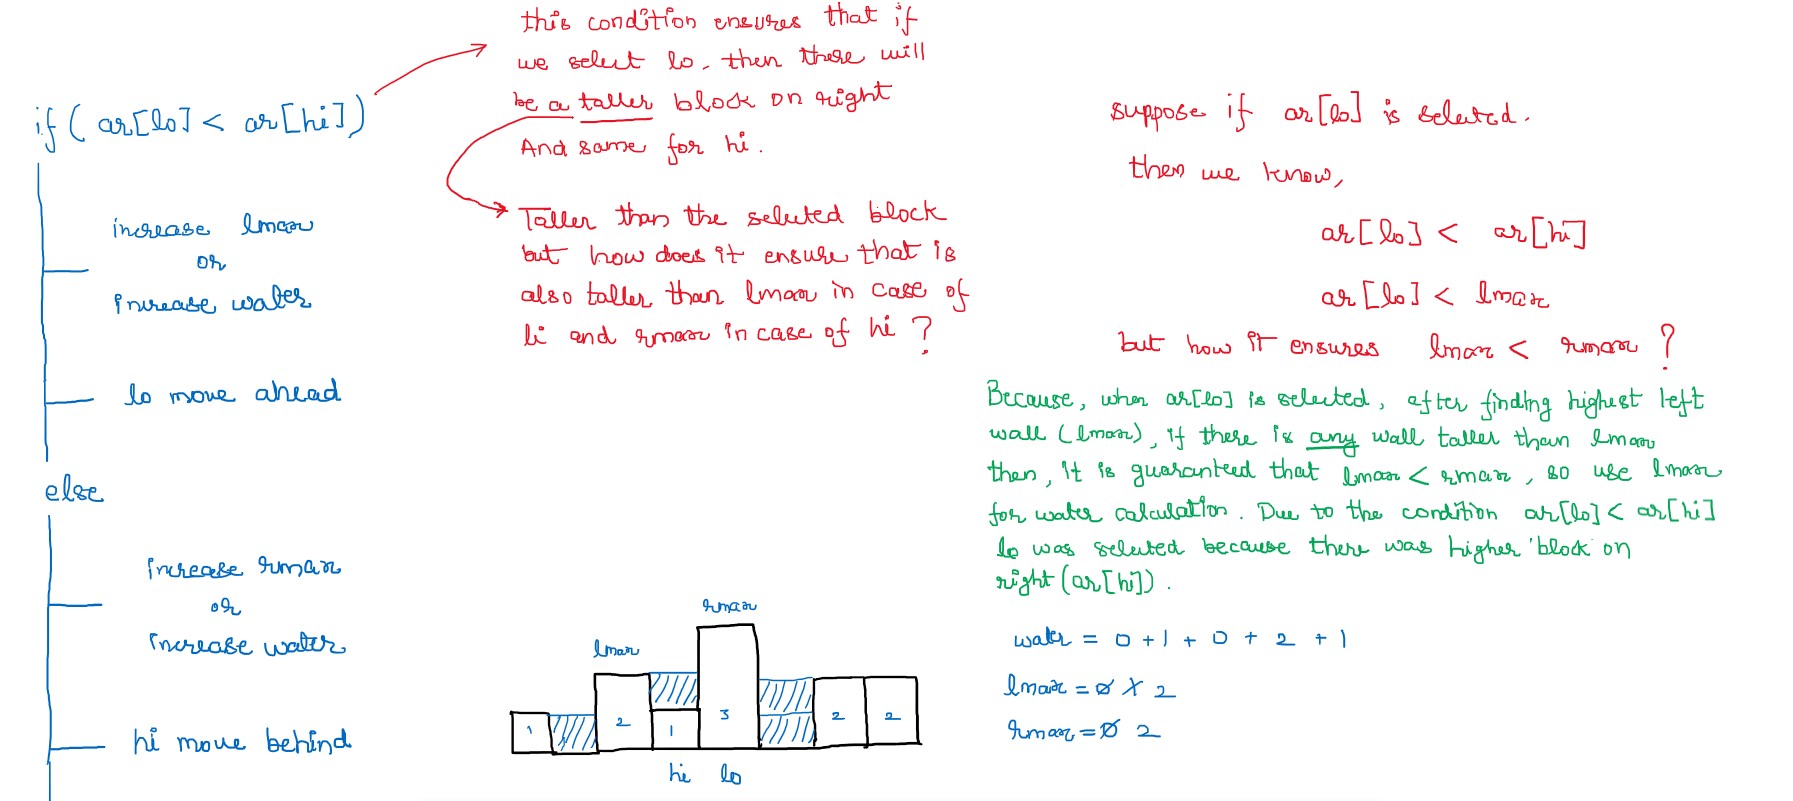 if ( ar[lo] < ar[hi])
increase lmax
or
increase water
lo move ahead
else
increase rmax
or
increase water
hi move behind
this condition ensures that if
we select lo, then there will
be a taller block on right
And same for hi.
Taller than the selected block
but how does it ensure that is
also taller than lmax in case of
li and rmax in case of hi ?
suppose if ar[lo] is selected.
then we know,
ar[lo] < ar[hi]
ar[lo] < lmax
but how it ensures lmax < rmax ?
Because, when ar[lo] is selected, after finding highest left
wall (lmax), if there is any wall taller than lmax
then, it is guaranteed that lmax < rmax, so use lmax
for water calculation. Due to the condition ar[lo] < ar[hi]
lo was selected because there was higher block on
right (ar[hi]).
water = 0 + 1 + 0 + 2 + 1
lmax = 0 1 2
rmax = 0 2
rmax
lmax
1 2 1 3 2 2
hi lo